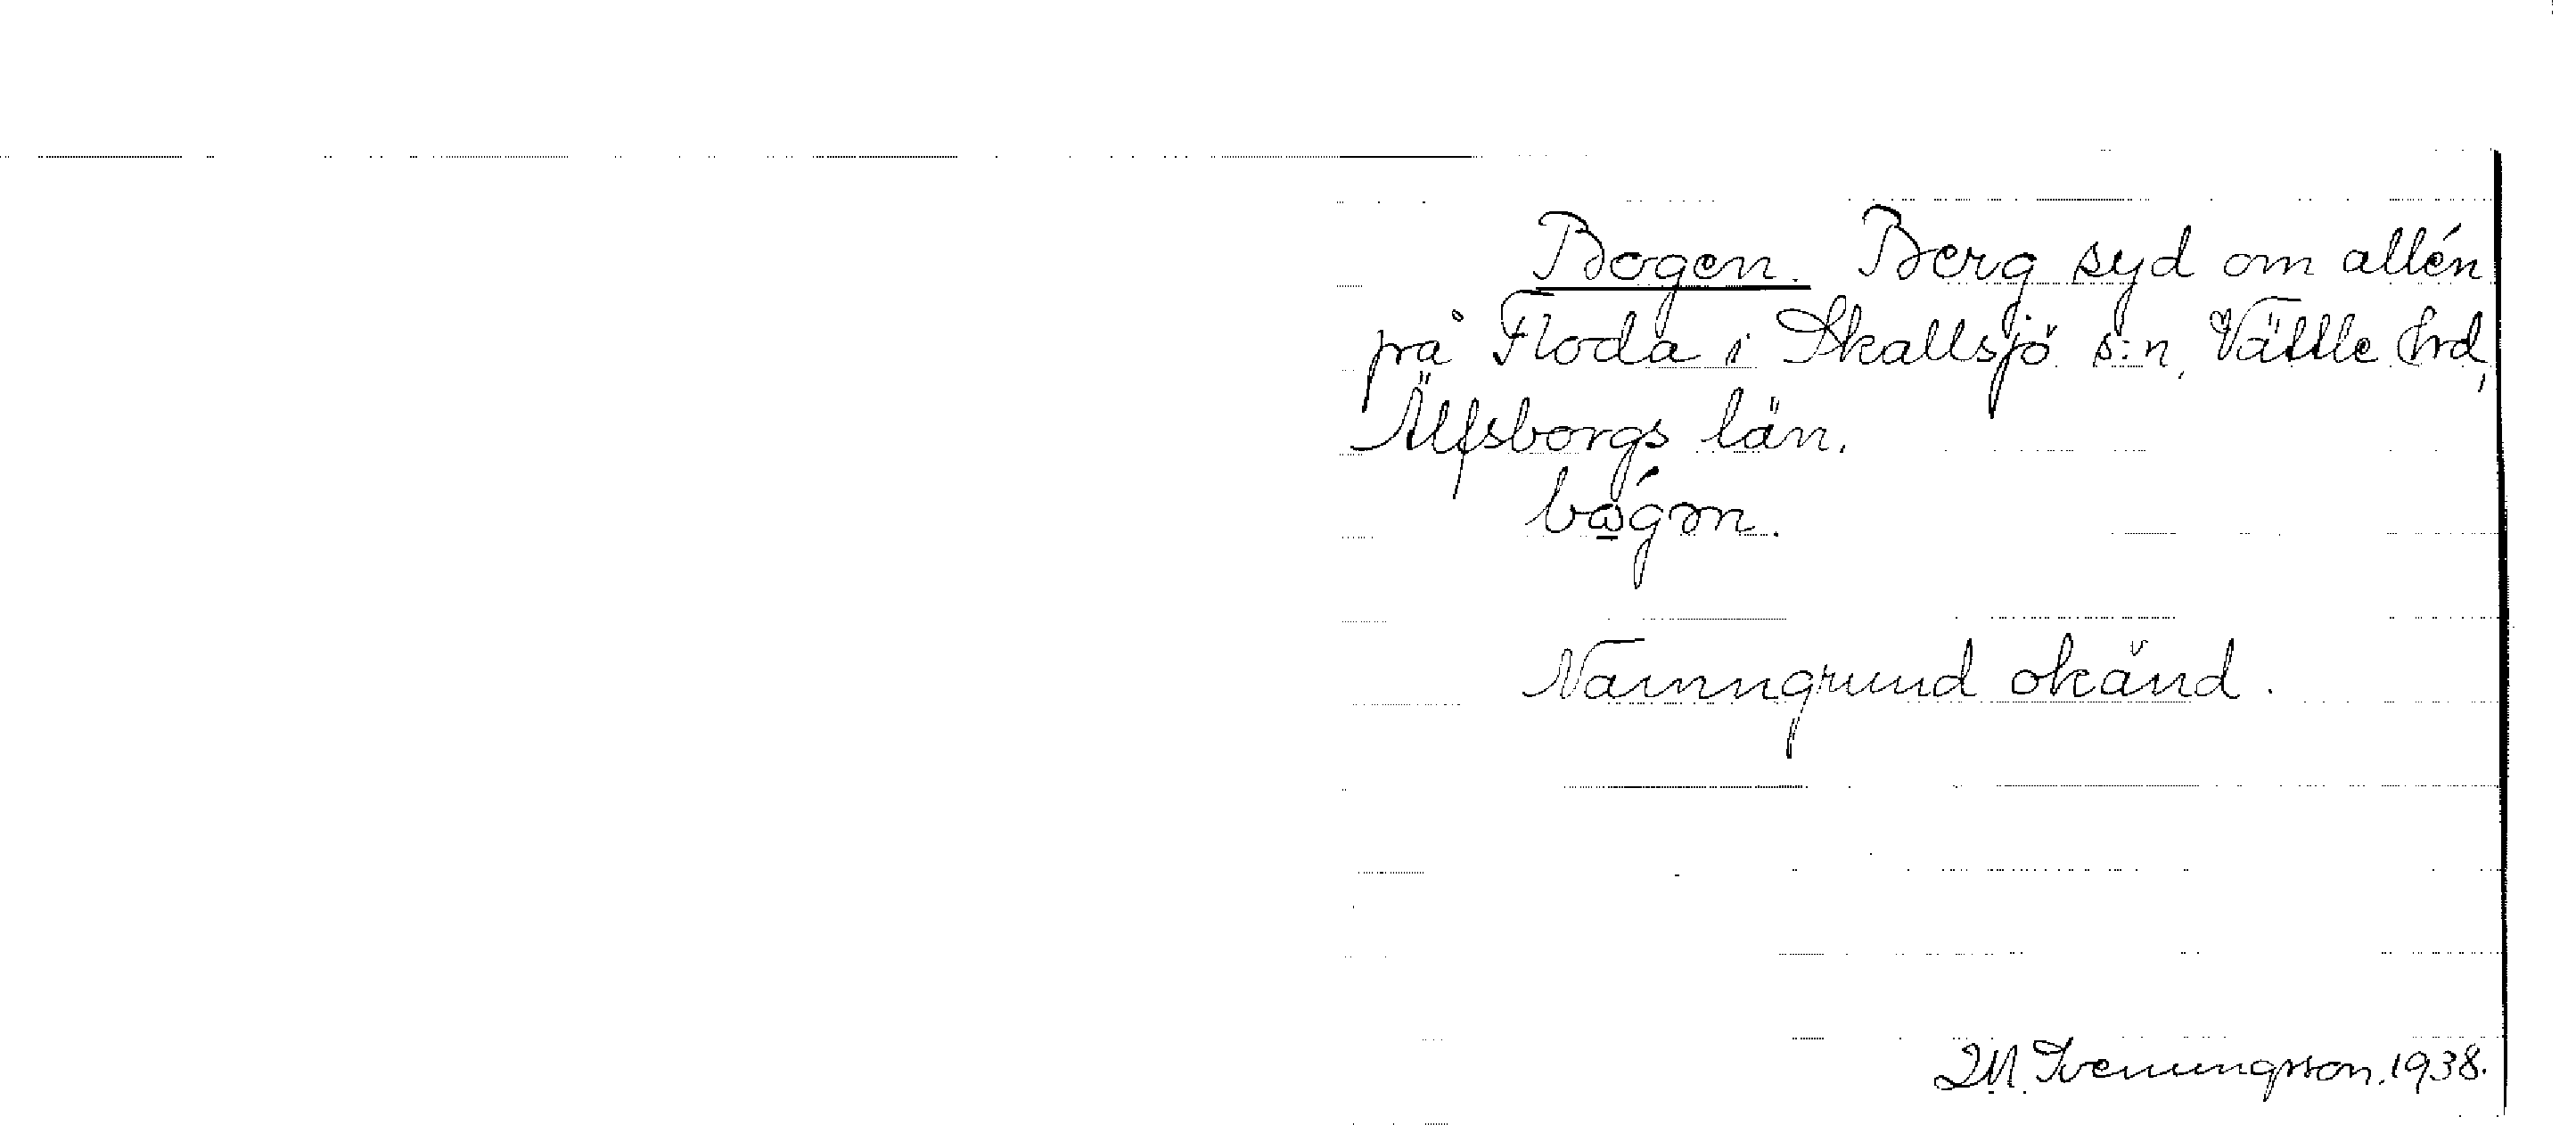 Bogen. Berg syd om allén
på Floda i Skallsjö s:n, Vättle hrd,
Älfsborgs län.
bώ̲gən.
Namngrund okänd.
M. Svenungsson. 1938.